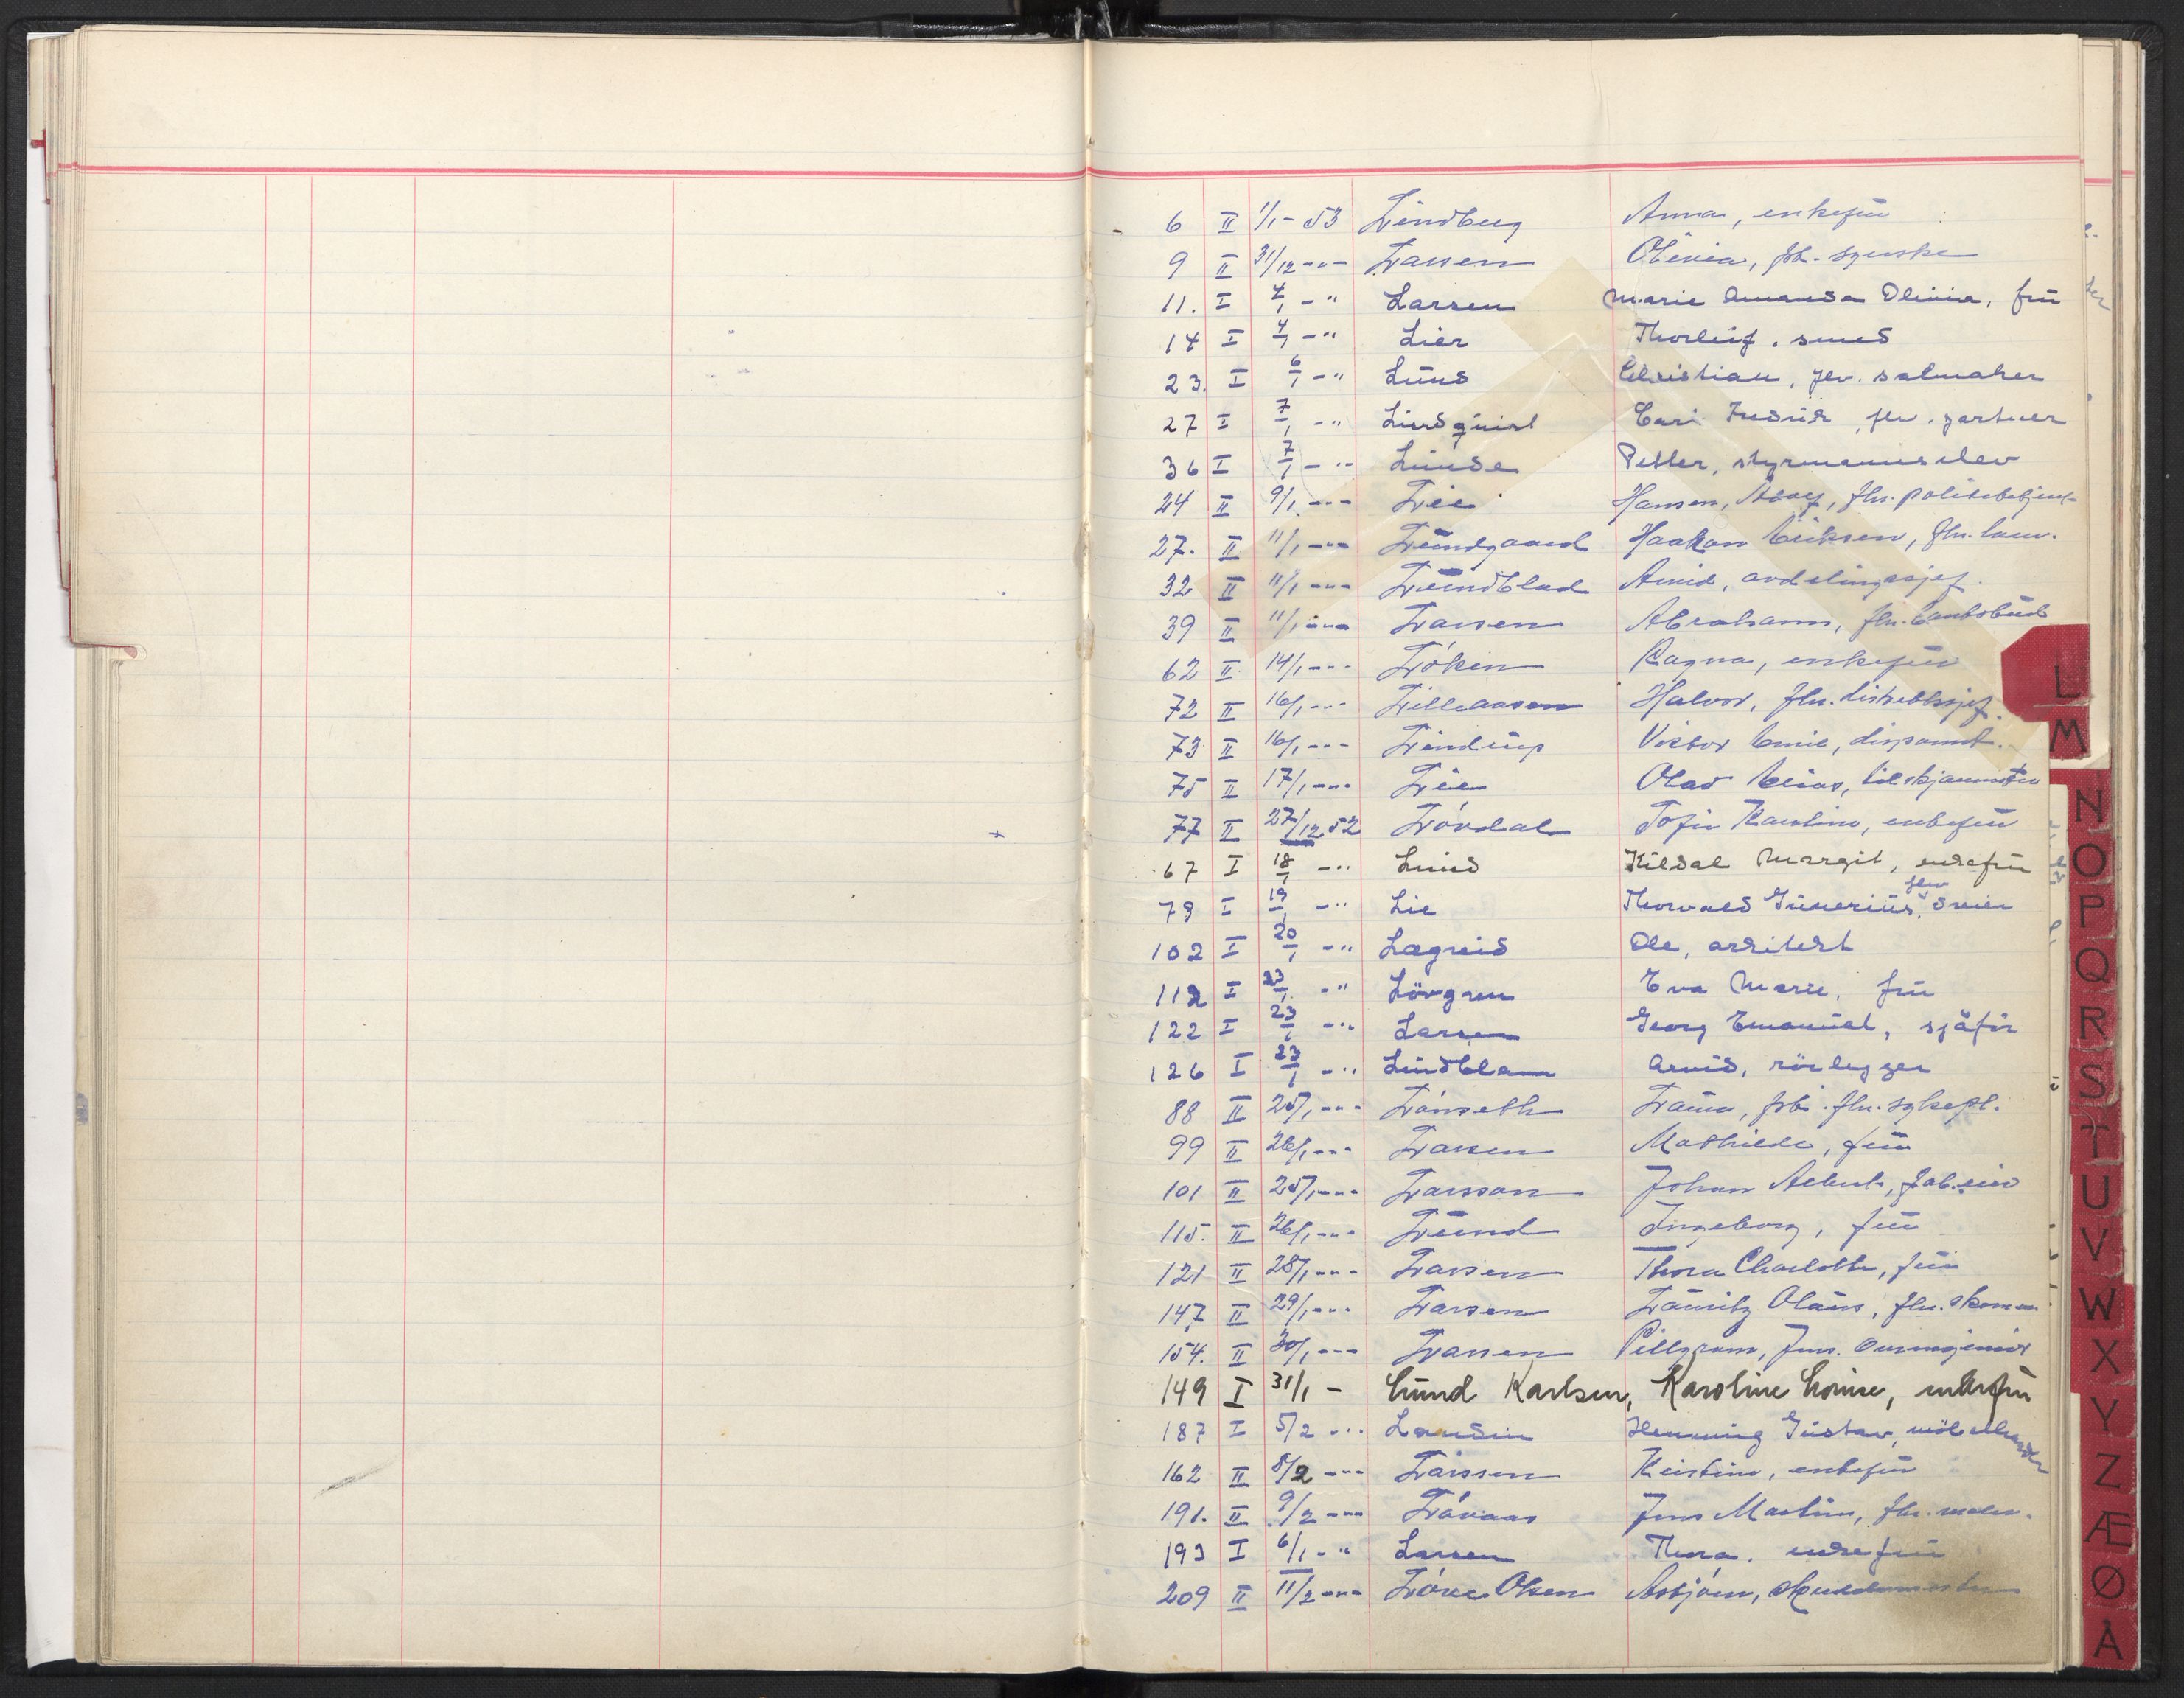 6 II 1/1 - 53 Lindberg Anna, enkefru
9 II 31/12 -"- Larsen Olivia, fhv. syerske
11. I 4/1 -" Larsen Marie Amanda Olivia, fru
14 I 4/1 -" Lier Thorleif, smed
23. I 6/1 -" Lund Christian, fhv. salmaker
27 I 7/1 -" Lindquist Carl Fredrik, fhv. gartner
36 I 7/1 -" Lunde Petter, styrmannselev
24 II 9/1 -"- Lie Hansen, Adolf, fhv. politibetjent
27. II 11/1 -"- Lundgaard Haakon Eriksen, fhv.
32 II 11/1 -"- Lundblad Arvid, avdelingssjef.
39 II 11/1 -"- Larsen Abraham, fhv. bankbud
62 II 14/1 -"- Löken Ragna, enkefru
72 II 16/1 -"- Lilleaasen Halvor, fhv. distriktssjef.
73 II 16/1 -"- Lindrup Victor Emil, disponent.
75 II 17/1 -"- Lie Olav Elias,
77 II 27/12 52 Lövdal Sofie Karoline, enkefru
67 I 18/1 -" Lund Kildal Margit, enkefru
79 I 19/1 -" Lie Thorvald Gunerius, fhv dreier
102 I 20/1 -" Lægreid Ole, arkitekt
112 I 23/1 -" Lövgren Eva Marie, fru
122 I 23/1 -" Larsen Georg Emanuel, sjåför
126 I 23/1 -" Lindblam Arvid, rörlegger
88 II 25/1 -"- Lönseth Laura, frk. fhv. sykepl.
99 II 26/1 -"- Larsen Mathilde, fru
101 II 25/1 -"- Larsson Johan Albert,
115. II 26/1 -"- Lund Ingeborg, fru
121 II 28/1 -"- Larsen Thora Charlotte, fru
147 II 29/1 -"- Larsen Lauritz Olaus, fhv.
154. II 30/1 -"- Larsen Pillgram, Jens. overingeniör
149 I 31/1 - Lund Karlsen, Karoline Louise, enkefru
187 I 5/2 -" Landin Henning Gustav, möbelhandler
162 II 8/2 -"- Larssen Kristine, enkefru
191. II 9/2 -"- Lövaas Jens Martin, fhv. maler.
193 I 6/1 -" Larsen Thora, enkefru
209 II 11/2 -"- Löve Olsen Asbjörn,
L
M
N
O
P
Q
R
S
T
U
V
W
X
Y
Z
Æ
Ø
A